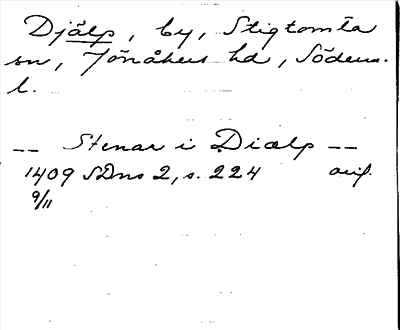 Djälp, by, Stigtomta
sn, Jönåkers hd, Söderm.
l.
-- Stenar i Diælp --
1409 SDns 2, s. 224 orig.
9/11